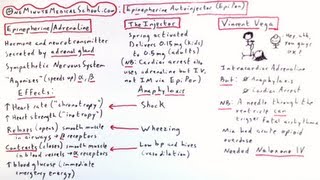 OneMinuteMedicalSchool.com: Epinephrine Autoinjector (EpiPen)
Epinephrine/Adrenaline
Hormone and neurotransmitter
secreted by adrenal gland
Sympathetic Nervous System
"Agonizes" (speeds up) α, β
Effects:
↑ Heart rate ("chronotropy")
↑ Heart strength ("inotropy")
Relaxes (opens) smooth muscle
in airways → β receptors
Contracts (closes) smooth muscle
in blood vessels → α receptors
↑ blood glucose (immediate
emergency energy)
The Injector
Spring activated
Delivers 0.15mg (kids)
to 0.3mg (adults)
(NB: Cardiac arrest also
uses adrenaline but IV,
not IM via EpiPen)
Anaphylaxis
Shock
Wheezing
Low bp and hives
(vasodilation)
Vincent Vega
Hey, uhh,
you guys
Intracardiac Adrenaline
But: Anaphylaxis
Cardiac Arrest
NB: A needle through the
ventricle can
trigger fatal arrhythmia
Mia had acute opioid
overdose
Needed Naloxone IV